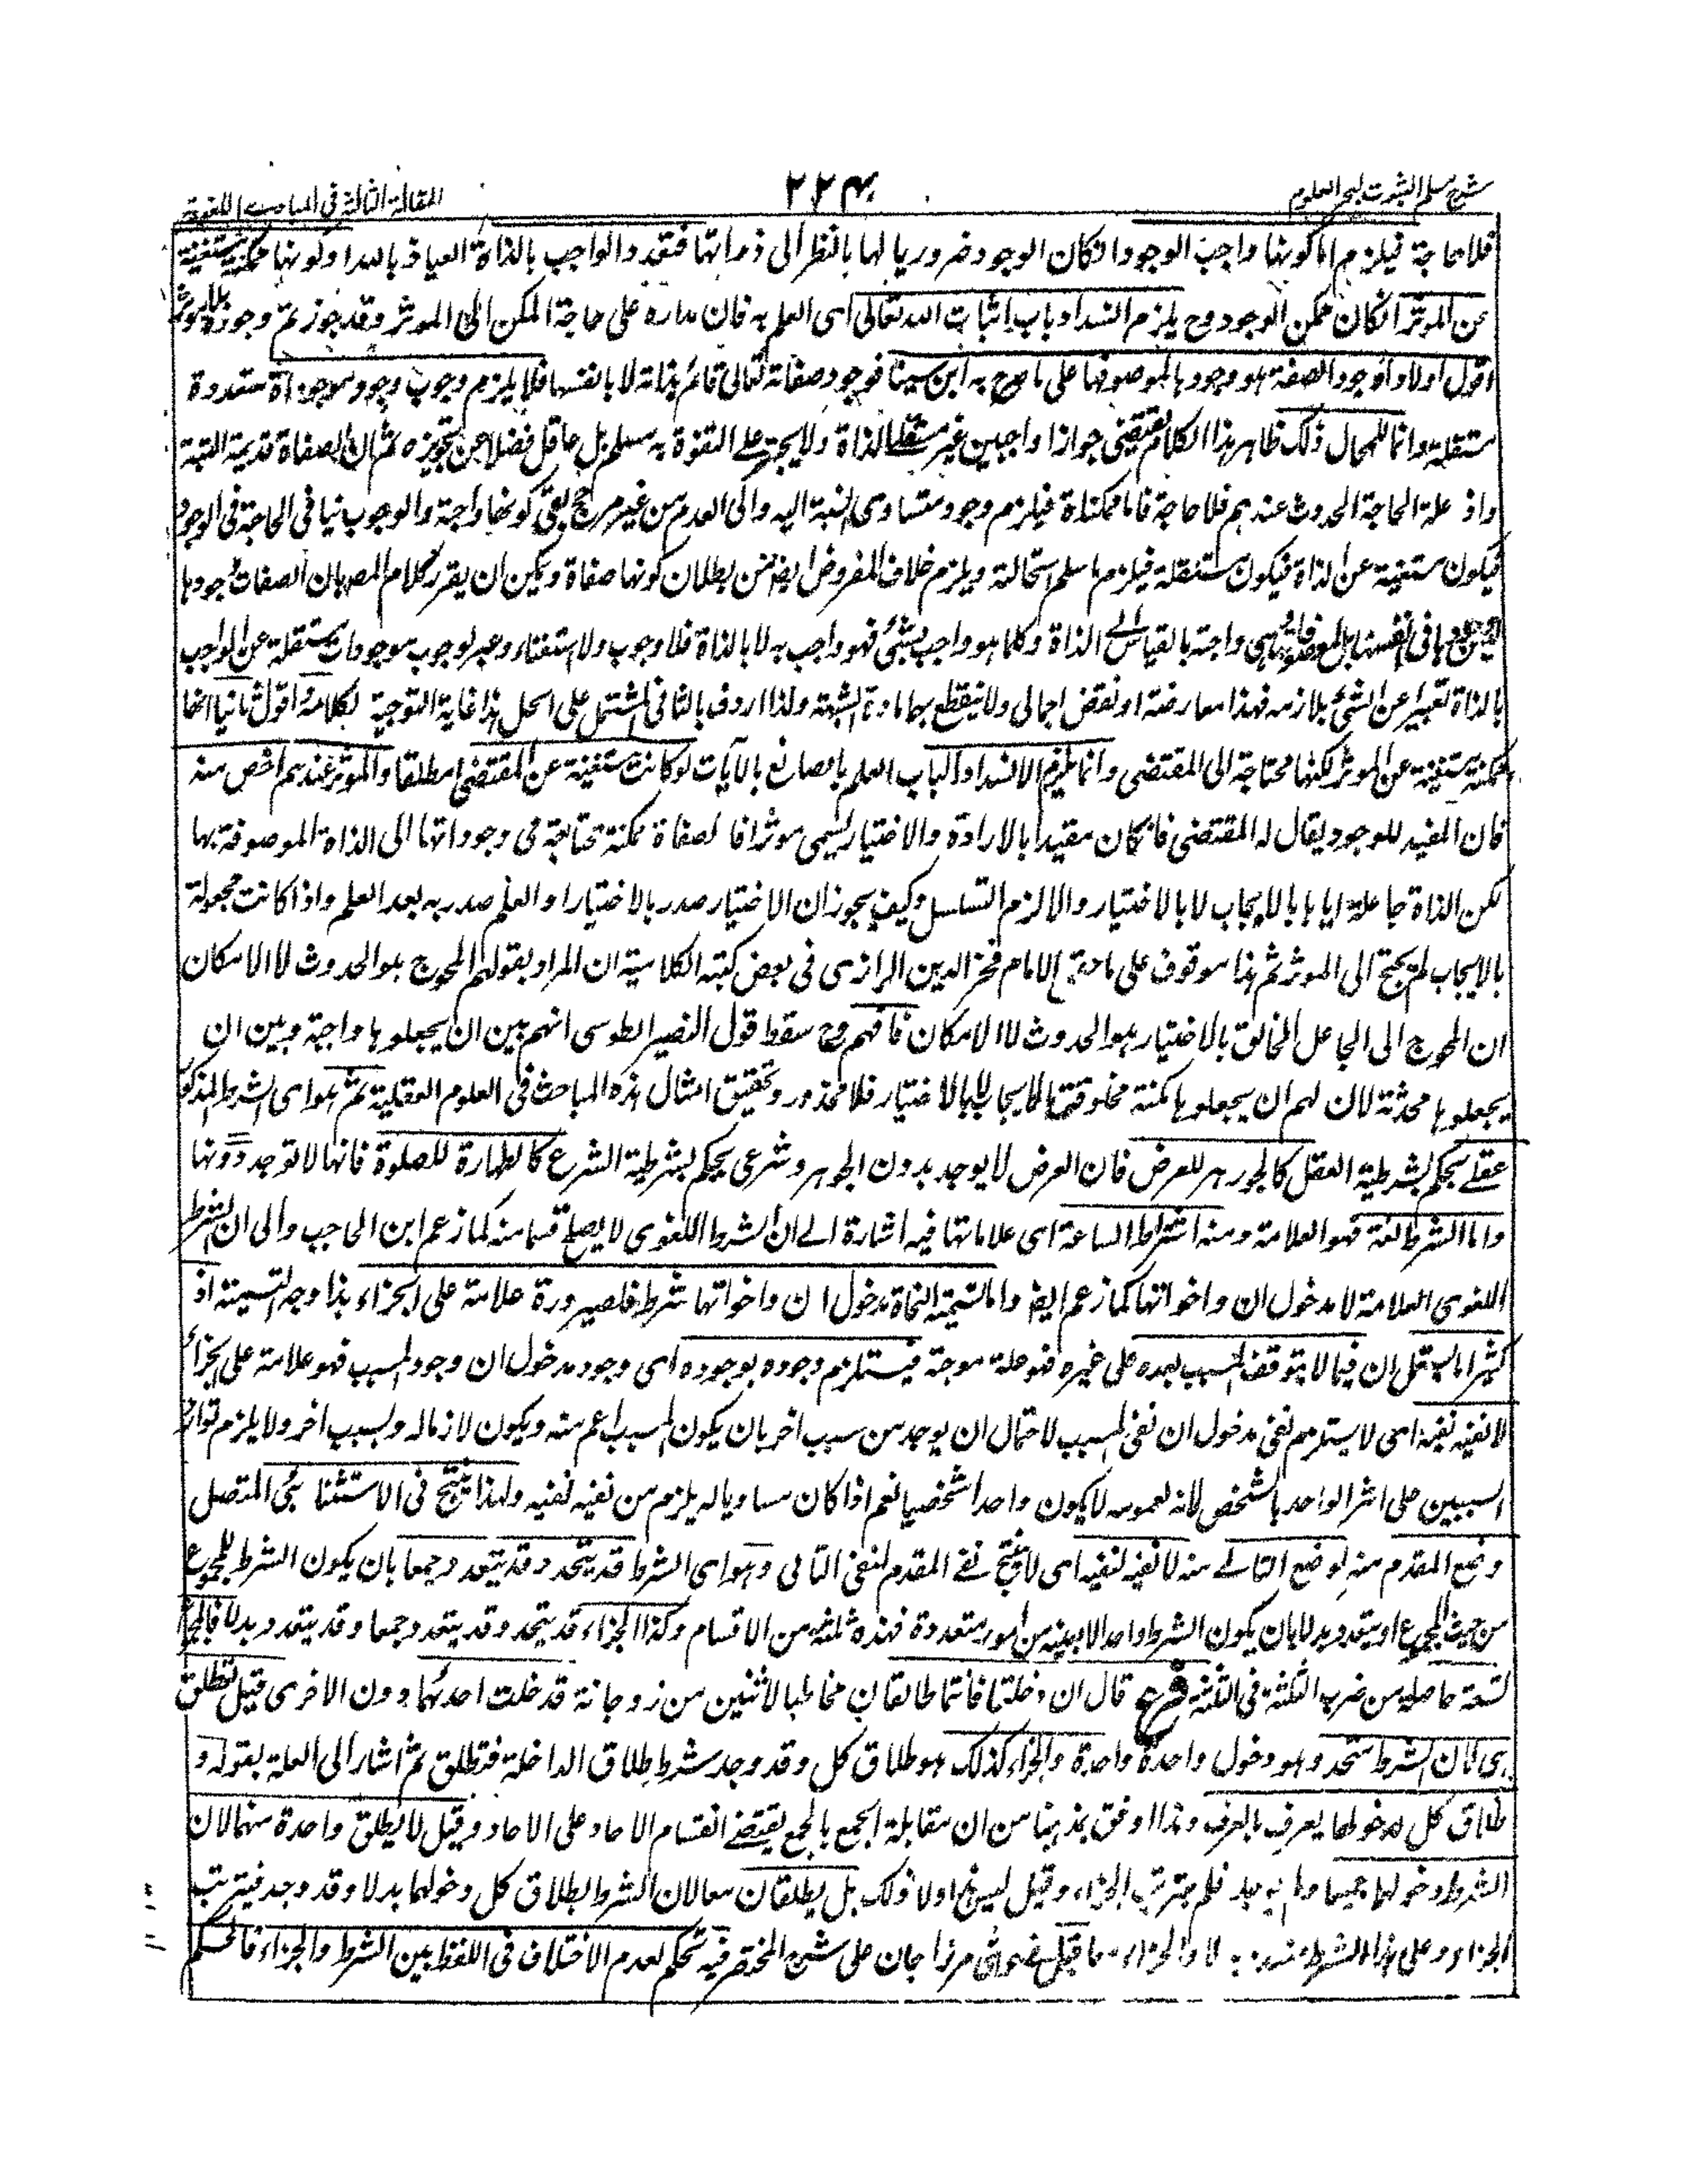 شرح مسلم الثبوت لبحر العلوم
٢٢٤
المقالة الثالثة فى المبادى اللغوية
فلا حاجة فيلزم اما كونها واجب الوجود ان كان الوجود ضروريا لها بالنظر الى ذواتها فتعدد الواجب بالذاة العياذ بالله او كونها ممكنة مستغنية
عن المؤثر ان كان ممكن الوجود وح يلزم انسداد باب اثبات الله تعالى اى العلم به فان مداره على حاجة الممكن الى الموثر وقد جوز ثم وجوزه بلا موثر
اقول اولا وجود الصفة هو وجودها لموصوفها على ما صرح به ابن سينا فوجود صفاته تعالى قائم بذاته لا بانفسها فلا يلزم وجوب وجود موجوداة متعددة
مستقلة وانما المحال ذلك ظاهر هذا الكلام يقتضى جواز واجبين غير مستقلى الذاة ولا يجترء على التفوه به مسلم بل عاقل فضلا عن تجويزه ثم ان الصفاة قديمة البتة
واذ علة الحاجة الحدوث عندهم فلا حاجة فاما ممكناة فيلزم وجود متساوى النسبة اليه والى العدم من غير مرجح بقى كونها واجبة والوجوب ينافى الحاجة فى الوجود
فيكون مستغنية عن الذاة فيكون مستقلة فيلزم ما سلم استحالته ويلزم خلاف المفروض ايضا من بطلان كونها صفاة ويمكن ان يقرر كلام المصـ بان الصفات وجودها
ليس وجودها فى انفسها بل لموصوفاتها فهى واجبة بالقياس الى الذاة وكلما هو واجب بشئ فهو واجب به لا بالذاة فلا وجوب ولا استغناء وعبر لوجوب موجودات مستقلة عن الواجب
بالذاة تعبيرا عن الشئ بلازمه فهذا معارضة او نقض اجمالى ولا ينقطع بهما مادة الشبهة ولذا اردف بالثانى المشتمل على الحل هذا غاية التوجيه لكلامه اقول ثانيا انها
ممكنة مستغنية عن الموثر لكنها محتاجة الى المقتضى وانما يلزم الانسداد لباب العلم بالصانع بالآيات لو كانت مستغنية عن المقتضى مطلقا والموثر عندهم اخص منه
فان المفيد للوجود يقال له المقتضى فان كان مقيدا بالارادة والاختيار يسمى موثرا فالصفاة ممكنة محتاجة فى وجوداتها الى الذاة الموصوفة بها
لكن الذاة جاعلة اياها بالايجاب لا بالاختيار والا لزم التسلسل وكيف يجوز ان الاختيار صدر بالاختيار او العلم صدر به بعد العلم واذا كانت مجعولة
بالايجاب لم يحتج الى الموثر ثم هذا موقوف على ما حققه الامام فخر الدين الرازى فى بعض كتبه الكلامية ان المراد بقولهم المحوج هو الحدوث لا الامكان
ان المحوج الى الجاعل الخالق بالاختيار هو الحدوث لا الامكان فافهم وح سقط قول النصير الطوسى انهم بين ان يجعلوها واجبة وبين ان
يجعلوها محدثة لان لهم ان يجعلوها ممكنة مخلوقة بالايجاب لا بالاختيار فلا محذور وتحقيق امثال هذه المباحث فى العلوم العقلية ثم هو اى الشرط المذكور
عقلى يحكم بشرطية العقل كالجوهر للعرض فان العرض لا يوجد بدون الجوهر وشرعى يحكم بشرطية الشرع كالطهارة للصلوة فانها لا توجد دونها
واما الشرط لغة فهو العلامة ومنه اشراط الساعة اى علاماتها فيه اشارة الى ان الشرط اللغوى لا يصلح قسما منه كما زعم ابن الحاجب والى ان الشرط
اللغوى العلامة لا مدخول ان واخواتها كما زعم ايضا واما تسمية النحاة مدخول ان واخواتها شرط فلصيرورة علامة على الجزاء هذا وجه التسمية اذ
كثيرا ما يستعمل ان فيما لا يتوقف المسبب بعده على غيره فهو علة موجبة فيستلزم وجوده بوجوده اى وجود مدخول ان وجود المسبب فهو علامة على الجزاء
لا نفيه نفيه اى لا يستلزم نفى مدخول ان نفى المسبب لاحتمال ان يوجد من سبب اخر بان يكون المسبب اعم منه ويكون لازما له ولسبب اخر ولا يلزم توارد
السببين على اثر الواحد بالشخص لانه لعمومه لا يكون واحدا شخصيا نعم اذا كان مساويا له يلزم من نفيه نفيه ولهذا ينتج فى الاستثنائى المتصل
وضع المقدم منه لوضع التالى منه لا نفيه لنفيه اى لا ينتج نفى المقدم لنفى التالى وهو اى الشرط قد يتحد وقد يتعدد جمعا بان يكون الشرط المجموع
من حيث المجموع او يتعدد بدلا بان يكون الشرط واحد الا بعينه من امور متعددة فهذه ثلثة من الاقسام وكذا الجزاء قد يتحد وقد يتعدد جمعا وقد يتعدد بدلا فالجملة
تسعة حاصلة من ضرب الثلثة فى الثلثة فرع قال ان دخلتما فانتما طالقان مخاطبا لاثنين من زوجاته قد خلت احدهما دون الاخرى قيل تطلق
هى لان الشرط متحد وهو دخول واحدة واحدة والجزاء كذلك هو طلاق كل وقد وجد شرط طلاق الداخلة فتطلق ثم اشار الى العلة بقوله و
طلاق كل بدخولها يعرف بالعرف وهذا اوفق بمذهبنا من ان مقابلة الجمع بالجمع يقتضى انقسام الاحاد على الاحاد وقيل لا يطلق واحدة منهما لان
الشرط دخولهما جميعا ولم يوجد فلم يترتب الجزاء وقيل ليس هذا ولا ذلك بل يطلقان معا لان الشرط لطلاق كل دخولهما بدلا وقد وجد فيترتب
الجزاء وعلى هذا الشرط متعدد بدلا والجزاء ما قيل فى حواشى مرزا جان على شرح المختصر فيه تحكم لعدم الاختلاف فى اللفظ بين الشرط والجزاء فالحكم